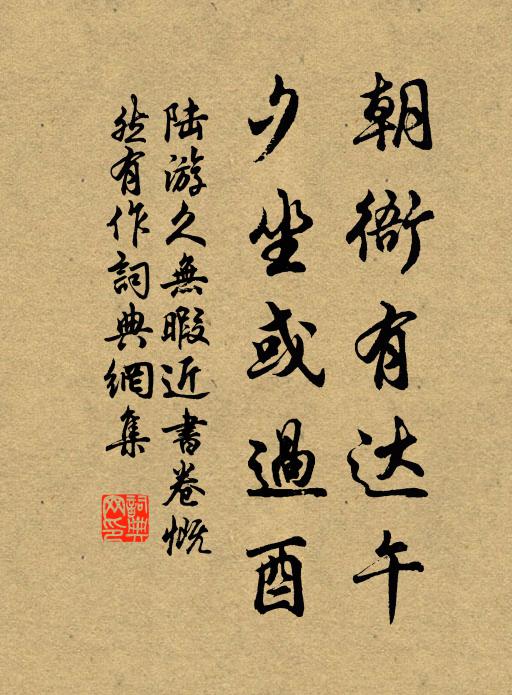 朝衙有达午
夕坐或過酉
陆游久無暇近書卷慨
然有作詞典網集
詞典网印